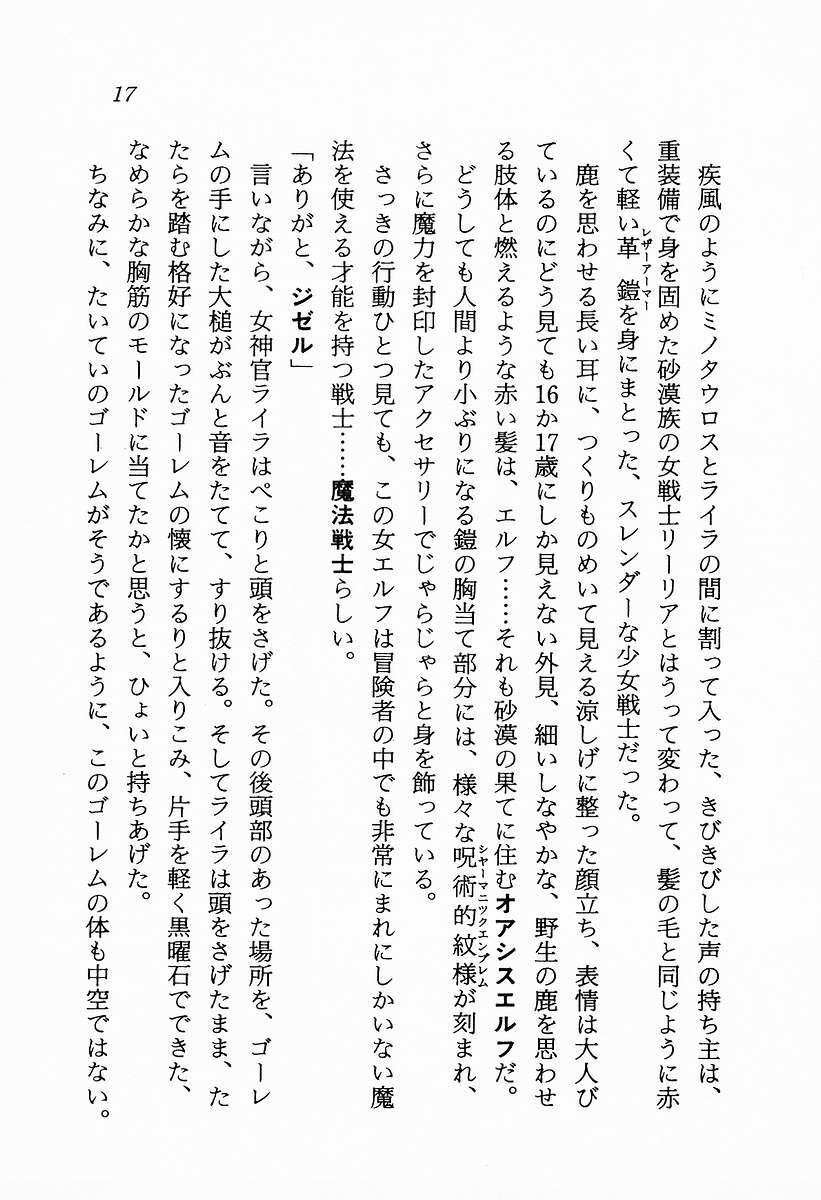 17
疾風のようにミノタウロスとライラの間に割って入った、きびきびした声の持ち主は、
重装備で身を固めた砂漠族の女戦士リーリアとはうって変わって、髪の毛と同じように赤
くて軽い革鎧を身にまとった、スレンダーな少女戦士だった。
レザーアーマー
鹿を思わせる長い耳に、つくりものめいて見える涼しげに整った顔立ち、表情は大人び
ているのにどう見ても16か17歳にしか見えない外見、細いしなやかな、野生の鹿を思わせ
る肢体と燃えるような赤い髪は、エルフ……それも砂漠の果てに住むオアシスエルフだ。
どうしても人間より小ぶりになる鎧の胸当て部分には、様々な呪術的紋様が刻まれ、
シャーマニックエンブレム
さらに魔力を封印したアクセサリーでじゃらじゃらと身を飾っている。
さっきの行動ひとつ見ても、この女エルフは冒険者の中でも非常にまれにしかいない魔
法を使える才能を持つ戦士……魔法戦士らしい。
「ありがと、ジゼル」
言いながら、女神官ライラはぺこりと頭をさげた。その後頭部のあった場所を、ゴーレ
ムの手にした大槌がぶんと音をたてて、すり抜ける。そしてライラは頭をさげたまま、た
たらを踏む格好になったゴーレムの懐にするりと入りこみ、片手を軽く黒曜石でできた、
なめらかな胸筋のモールドに当てたかと思うと、ひょいと持ちあげた。
ちなみに、たいていのゴーレムがそうであるように、このゴーレムの体も中空ではない。